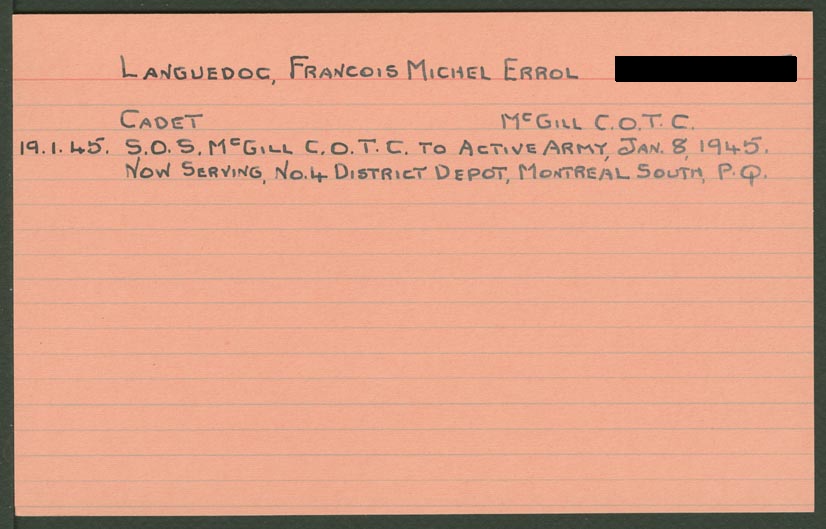 LANGUEDOC, FRANCOIS MICHEL ERROL
CADET McGILL C.O.T.C.
19.1.45. S.O.S. McGILL C.O.T.C. TO ACTIVE ARMY, JAN. 8, 1945.
NOW SERVING, NO.4 DISTRICT DEPOT, MONTREAL SOUTH, P.Q.